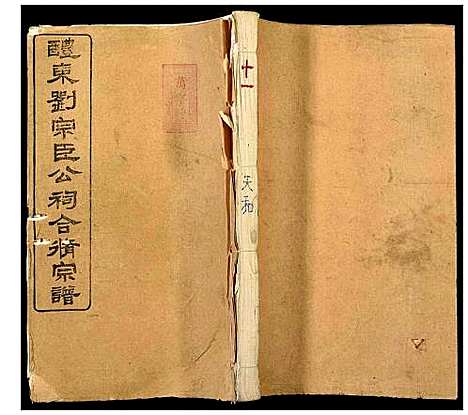 醴東劉宗臣公祠合脩宗譜
十一
天和